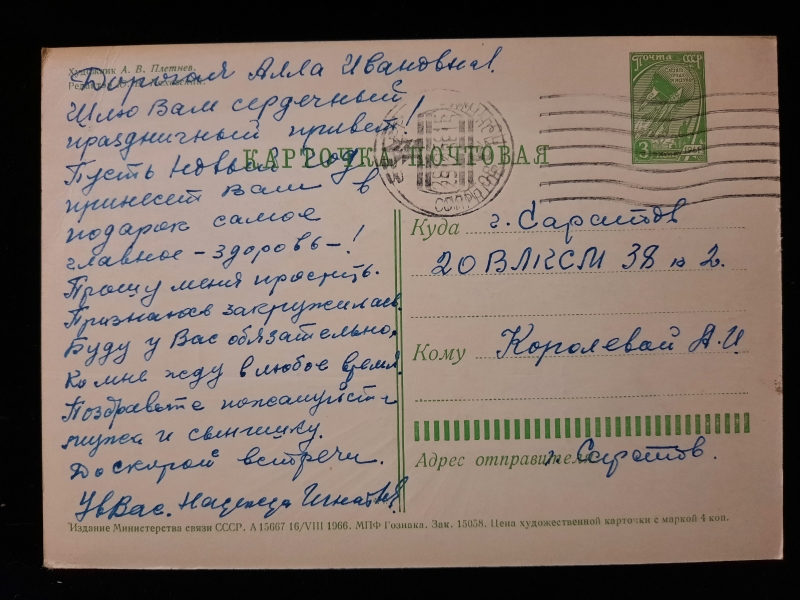 Художник А. В. Плетнев.
Дорогая Алла Ивановна!
Шлю Вам сердечный
праздничный привет!
Пусть Новый год
принесет Вам в
подарок самое
главное - здоровь-!
Прошу меня простить.
Признаюсь закружилась.
Буду у Вас обязательно,
Ко мне жду в любое время.
Поздравьте пожалуйста
мужа и сынишку.
До скорой встречи.
Ув Вас. Надежда
КАРТОЧКА ПОЧТОВАЯ
ПОЧТА СССР
3
Куда г. Саратов
20 ВЛКСМ 38 к 2.
Кому Королевой А.И
Адрес отправителя: г. Саратов.
Издание Министерства связи СССР. А 15667 16/VIII 1966. МПФ Гознака. Зак. 15058. Цена художественной карточки с маркой 4 коп.